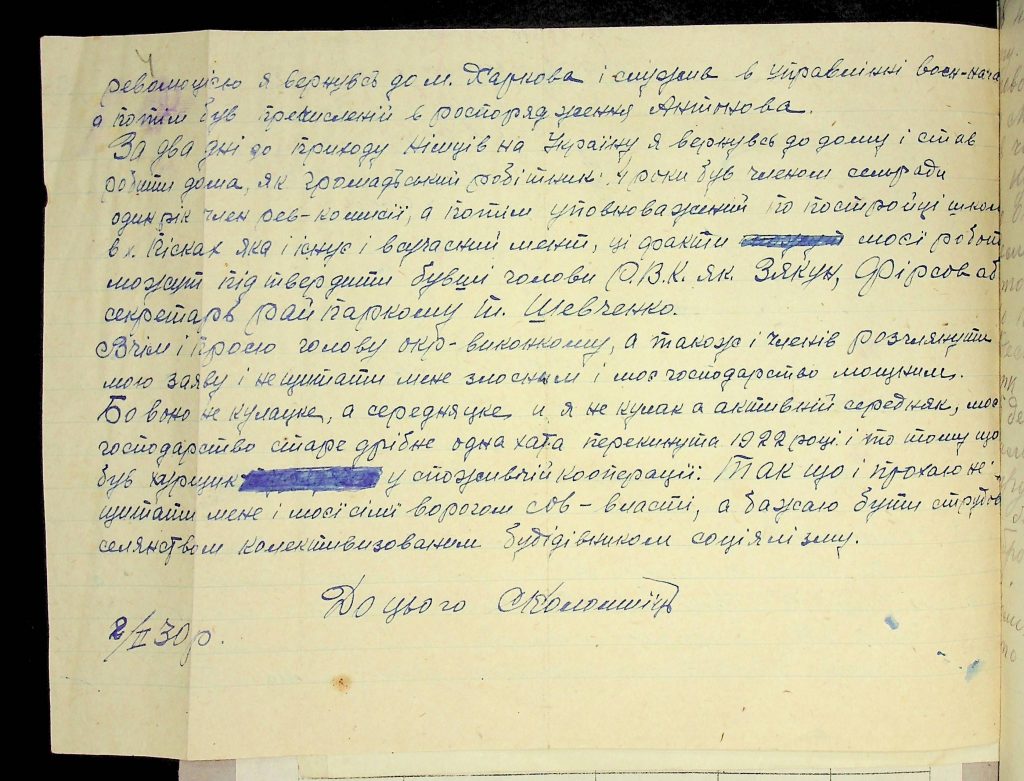 революцією я вернувсь до м. Харкова і служив в управлінні воєн-нача
а потім був пречисленій в роспорядження Антонова.
За два дні до приходу німців на Україну я вернувсь до дому і став
робити дома, як громадський робітник 4 роки був членом сельради
один рік член рев-комисії, а потім уповноважений по постройці школи
в х. Пісках яка і існує і всучасний мент, ці факти моєї роботи
можут підтвердити бувші голови Р.В.К. як. Зякун, Фірсов аб
секретарь райпаркому т. Шевченко.
Вчім і прошу голову окр-виконкому, а також і членів розглянути
мою заяву і нещитати мене злосним і моє господарство мощним.
Бо воно не кулацке, а середняцке и я не кулак а активній середняк, моє
господарство старе дрібне одна хата перекинута 1922 році і то тому що
був у споживчій кооперації. Так що і прохаю не
щитати мене і моєї сімї ворогом сов-власті, а бажаю бути з трудов
селянством колективизованим будідівником соціялізму.
До цього СКоломієць
2/II 30 р.